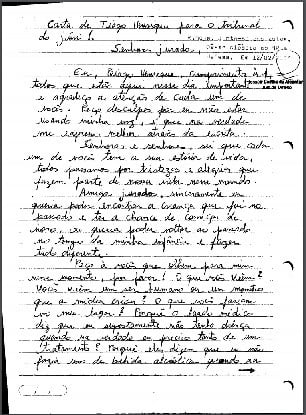 Carta de Tiago Henrique para o tribunal
do júri.
Senhores jurados.
Eu, Tiago Henrique, cumprimento a
todos que estão aqui nesse dia importante
e agradeço a atenção de cada um de
vocês. Peço desculpas por eu não estar
usando minha voz, é que na verdade
me expresso melhor através da escrita.
Senhoras e senhores, sei que cada
um de vocês tem a sua estória de vida,
todos passamos por tristezas e alegrias que
fazem parte de nossa vida nesse mundo.
Amigos jurados, sinceramente eu
queria poder encontrar a criança que fui no
passado e ter a chance de começar de
novo, eu queria poder voltar ao passado
no tempo da minha infância e fazer
tudo diferente.
Peço à vocês que olhem para mim
nesse momento, por favor! O que vocês vêem?
Vocês vêem um ser humano ou um monstro
que a mídia criou? O que vocês fariam
no meu lugar? Porquê o laudo médico
diz que eu supostamente não tenho doença
quando na verdade eu preciso tanto de um
tratamento? Porquê eles dizem que eu não
fazia uso de bebida alcoólica quando na